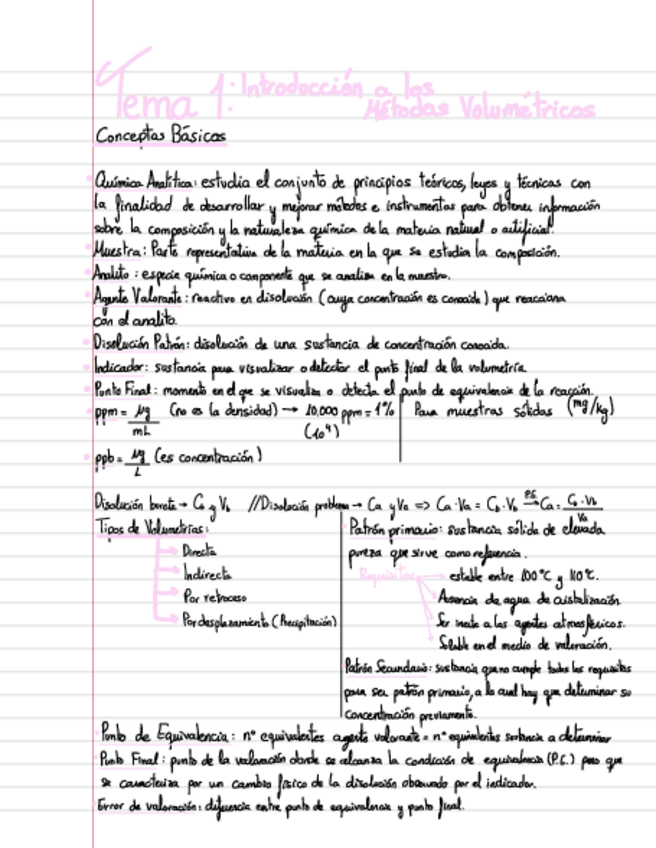 Tema 1: Introducción a los
Métodos Volumétricos
Conceptos Básicos
Química Analítica: estudia el conjunto de principios teóricos, leyes y técnicas con
la finalidad de desarrollar y mejorar métodos e instrumentos para obtener información
sobre la composición y la naturaleza química de la materia natural o artificial.
Muestra: Parte representativa de la materia en la que se estudia la composición.
Analito: especie química o componente que se analiza en la muestra.
Agente Valorante: reactivo en disolución (cuya concentración es conocida) que reacciona
con el analito.
Disolución Patrón: disolución de una sustancia de concentración conocida.
Indicador: sustancia para visualizar o detectar el punto final de la volumetría.
Punto Final: momento en el que se visualiza o detecta el punto de equivalencia de la reacción.
ppm = μg/mL (no es la densidad) → 10.000 ppm = 1% Para muestras sólidas (mg/kg)
(10⁴)
ppb = μg/L (es concentración)
Disolución bureta → Cb y Vb //Disolución problema → Ca y Va => Ca·Va = Cb·Vb →P.E. Ca = Cb·Vb/Va
Tipos de Volumetrías:
Directa
Indirecta
Por retroceso
Por desplazamiento (Precipitación)
Patrón primario: sustancia sólida de elevada
pureza que sirve como referencia.
Requisitos → estable entre 100°C y 110°C.
Ausencia de agua de cristalización.
Ser inerte a los agentes atmosféricos.
Soluble en el medio de valoración.
Patrón Secundario: sustancia que no cumple todos los requisitos
para ser patrón primario, a la cual hay que determinar su
concentración previamente.
Punto de Equivalencia: nº equivalentes agente valorante = nº equivalentes sustancia a determinar
Punto Final: punto de la valoración donde se alcanza la condición de equivalencia (P.E.) pero que
se caracteriza por un cambio físico de la disolución observado por el indicador.
Error de valoración: diferencia entre punto de equivalencia y punto final.